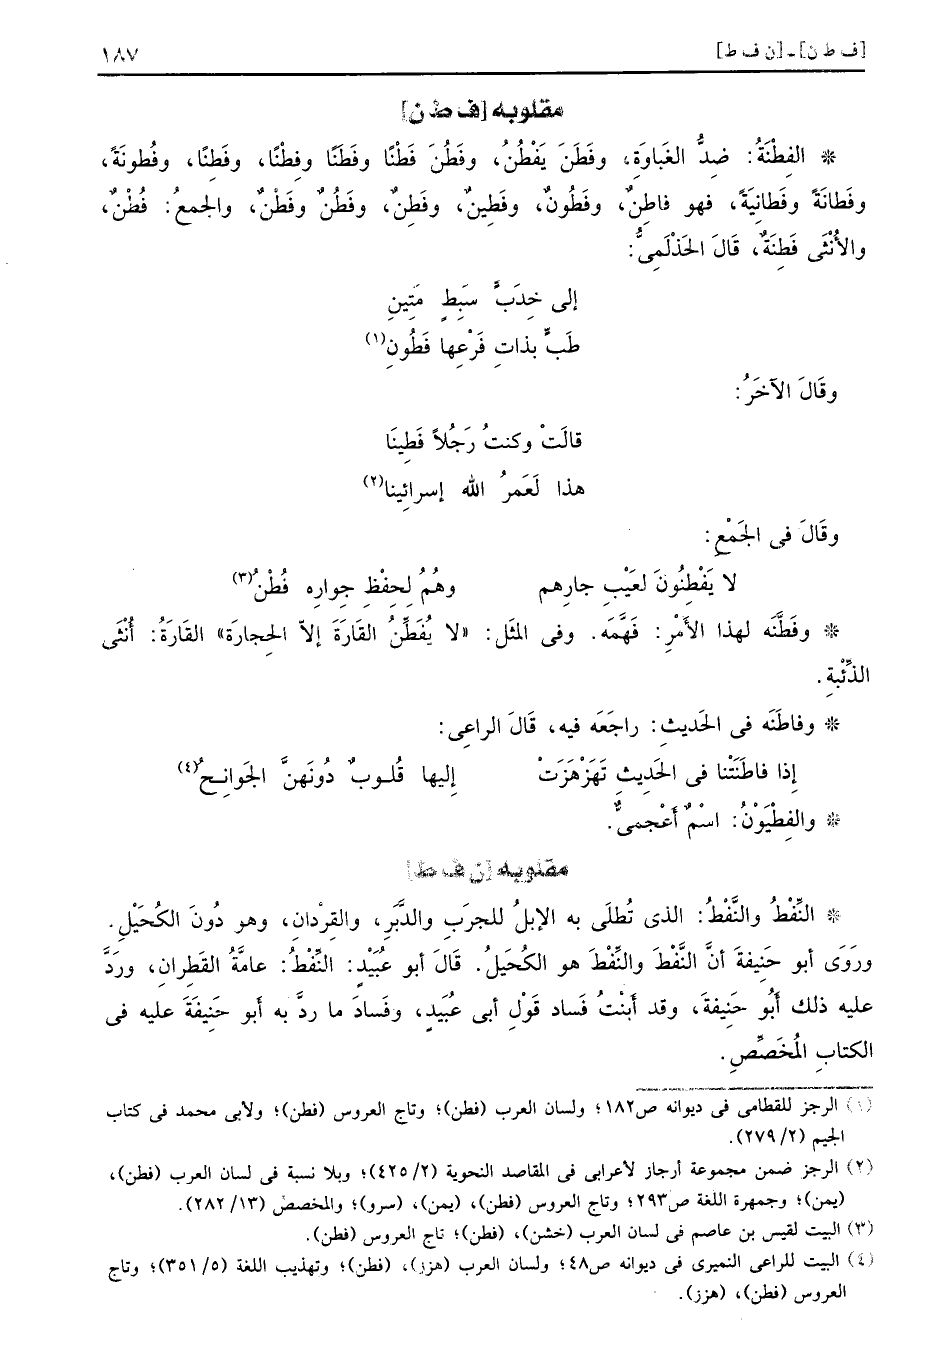 [ف ط ن] - [ن ف ط] ١٨٧
مقلوبه [ف ط ن]
* الفِطْنَةُ: ضِدُّ الغَباوَةِ، وفَطَنَ يَفْطُنُ، وفَطُنَ فَطْنًا وفَطَنًا وفِطْنًا، وفَطِنًا، وفُطونَةً،
وفَطانَةً وفَطانِيَةً، فهو فاطِنٌ، وفَطُونٌ، وفَطِينٌ، وفَطِنٌ، وفَطُنٌ وفَطْنٌ، والجمعُ: فُطْنٌ،
والأُنْثَى فَطِنَةٌ، قَالَ الحَذْلَمِىُّ:
إلى خِدَبٍّ سَبَِطٍ مَتِينِ
طَبٍّ بذاتِ قَرْعِها فَطُونِ(١)
وقَالَ الآخَرُ:
قالَتْ وكنتُ رَجُلاً فَطِينَا
هذا لَعَمرُ الله إسرائِينا(٢)
وقَالَ فى الجَمْعِ:
لا يَفْطِنُونَ لعَيْبِ جارِهم وهُمُ لِحفْظِ جِوارِه فُطْنُ(٣)
* وفَطَّنَه لهذا الأَمْرِ: فَهَّمَه. وفى المثَل: «لا يُفَطِّنُ القَارَةَ إلاّ الحِجارَة» القَارَةُ: أُنْثَى
الذِّئْبةِ.
* وفاطَنَه فى الحَديثِ: راجَعَه فيه، قَالَ الراعِى:
إِذا فاطَنَتْنا فى الحَدِيثِ تَهَزْهَزَتْ إليها قُلوبٌ دُونَهنَّ الجَوانِحُ(٤)
* والفِطْيَوْنُ: اسْمٌ أَعْجمىٌّ.
مقلوبه [ن ف ط]
* النِّفْطُ والنَّفْطُ: الذى تُطلَى به الإبلُ للجرَبِ والدَّبَرِ، والقِرْدانِ، وهو دُونَ الكُحَيْلِ.
ورَوَى أبو حَنِيفةَ أنَّ النَّفْطَ والنِّفْطَ هو الكُحَيلُ. قَالَ أبو عُبَيْدٍ: النِّفْطُ: عامَّةُ القَطِرانِ، ورَدَّ
عليه ذلك أَبُو حَنِيفةَ، وقد أَبَنْتُ فَساد قَوْلِ أبى عُبَيدٍ، وفَسادَ ما ردَّ به أبو حَنِيفَةَ عليه فى
الكتابِ المُخَصِّصِ.
(١) الرجز للقطامى فى ديوانه ص١٨٢؛ ولسان العرب (فطن)؛ وتاج العروس (فطن)؛ ولأبى محمد فى كتاب
الجيم (٢/ ٢٧٩).
(٢) الرجز ضمن مجموعة أرجاز لأعرابى فى المقاصد النحوية (٢/ ٤٢٥)؛ وبلا نسبة فى لسان العرب (فطن)،
(يمن)؛ وجمهرة اللغة ص٢٩٣؛ وتاج العروس (فطن)، (يمن)، (سرو)؛ والمخصص (١٣/ ٢٨٢).
(٣) البيت لقيس بن عاصم فى لسان العرب (خشن)، (فطن)؛ تاج العروس (فطن).
(٤) البيت للراعى النميرى فى ديوانه ص٤٨؛ ولسان العرب (هزز)، (فطن)؛ وتهذيب اللغة (٥/ ٣٥١)؛ وتاج
العروس (فطن)، (هزز).